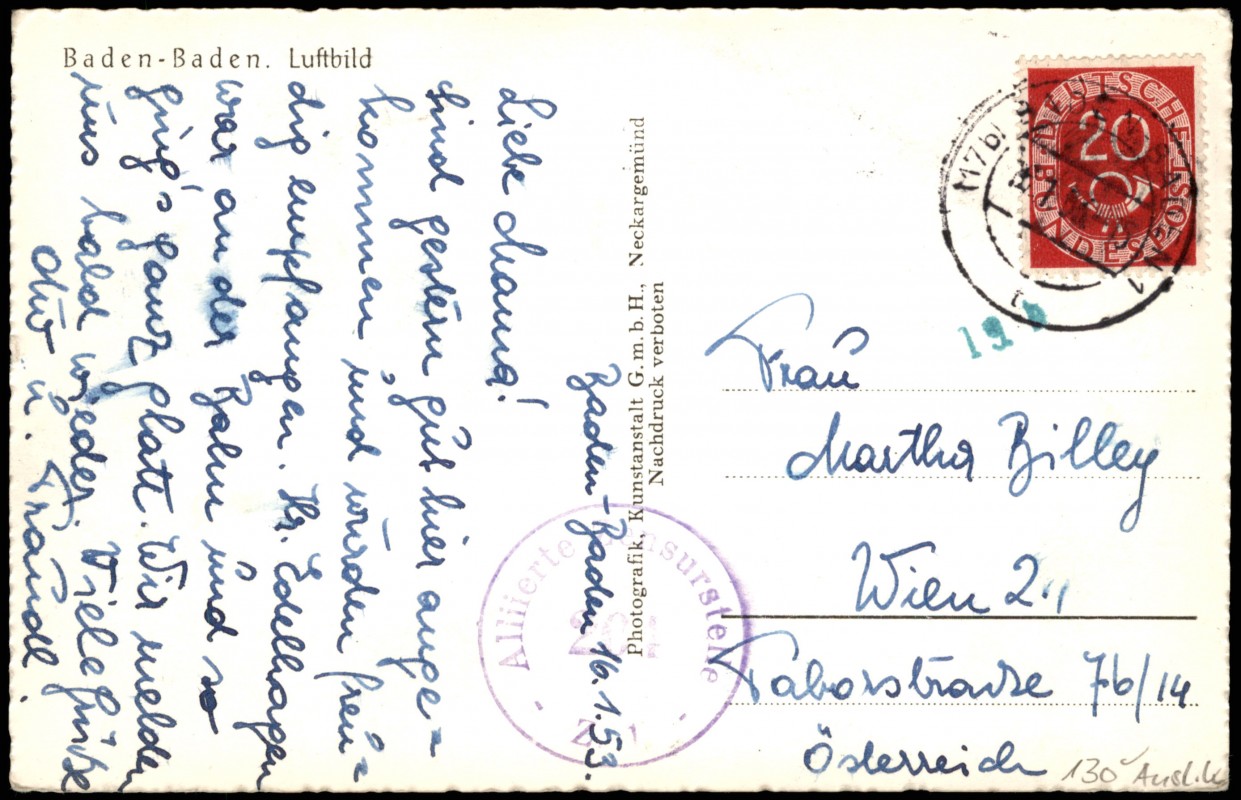 Baden-Baden. Luftbild
Baden-Baden 16.1.53.
Liebe Mama!
Sind gestern gut hier ange=
kommen und wurden freu=
dig empfangen. Hr. Edelhagen
war an der Bahn und so
ging's ganz glatt. Wir melden
uns bald wieder Viele Grüße
Otto u. Traudl.
Photografik, Kunstanstalt G.m.b.H., Neckargemünd
Nachdruck verboten
DEUTSCHE
20
BUNDESPOST
Alliierte Zensurstelle
Frau
Martha Billey
Wien 2.,
Taborstrasse 76/14
Österreich
130 Ausl.k